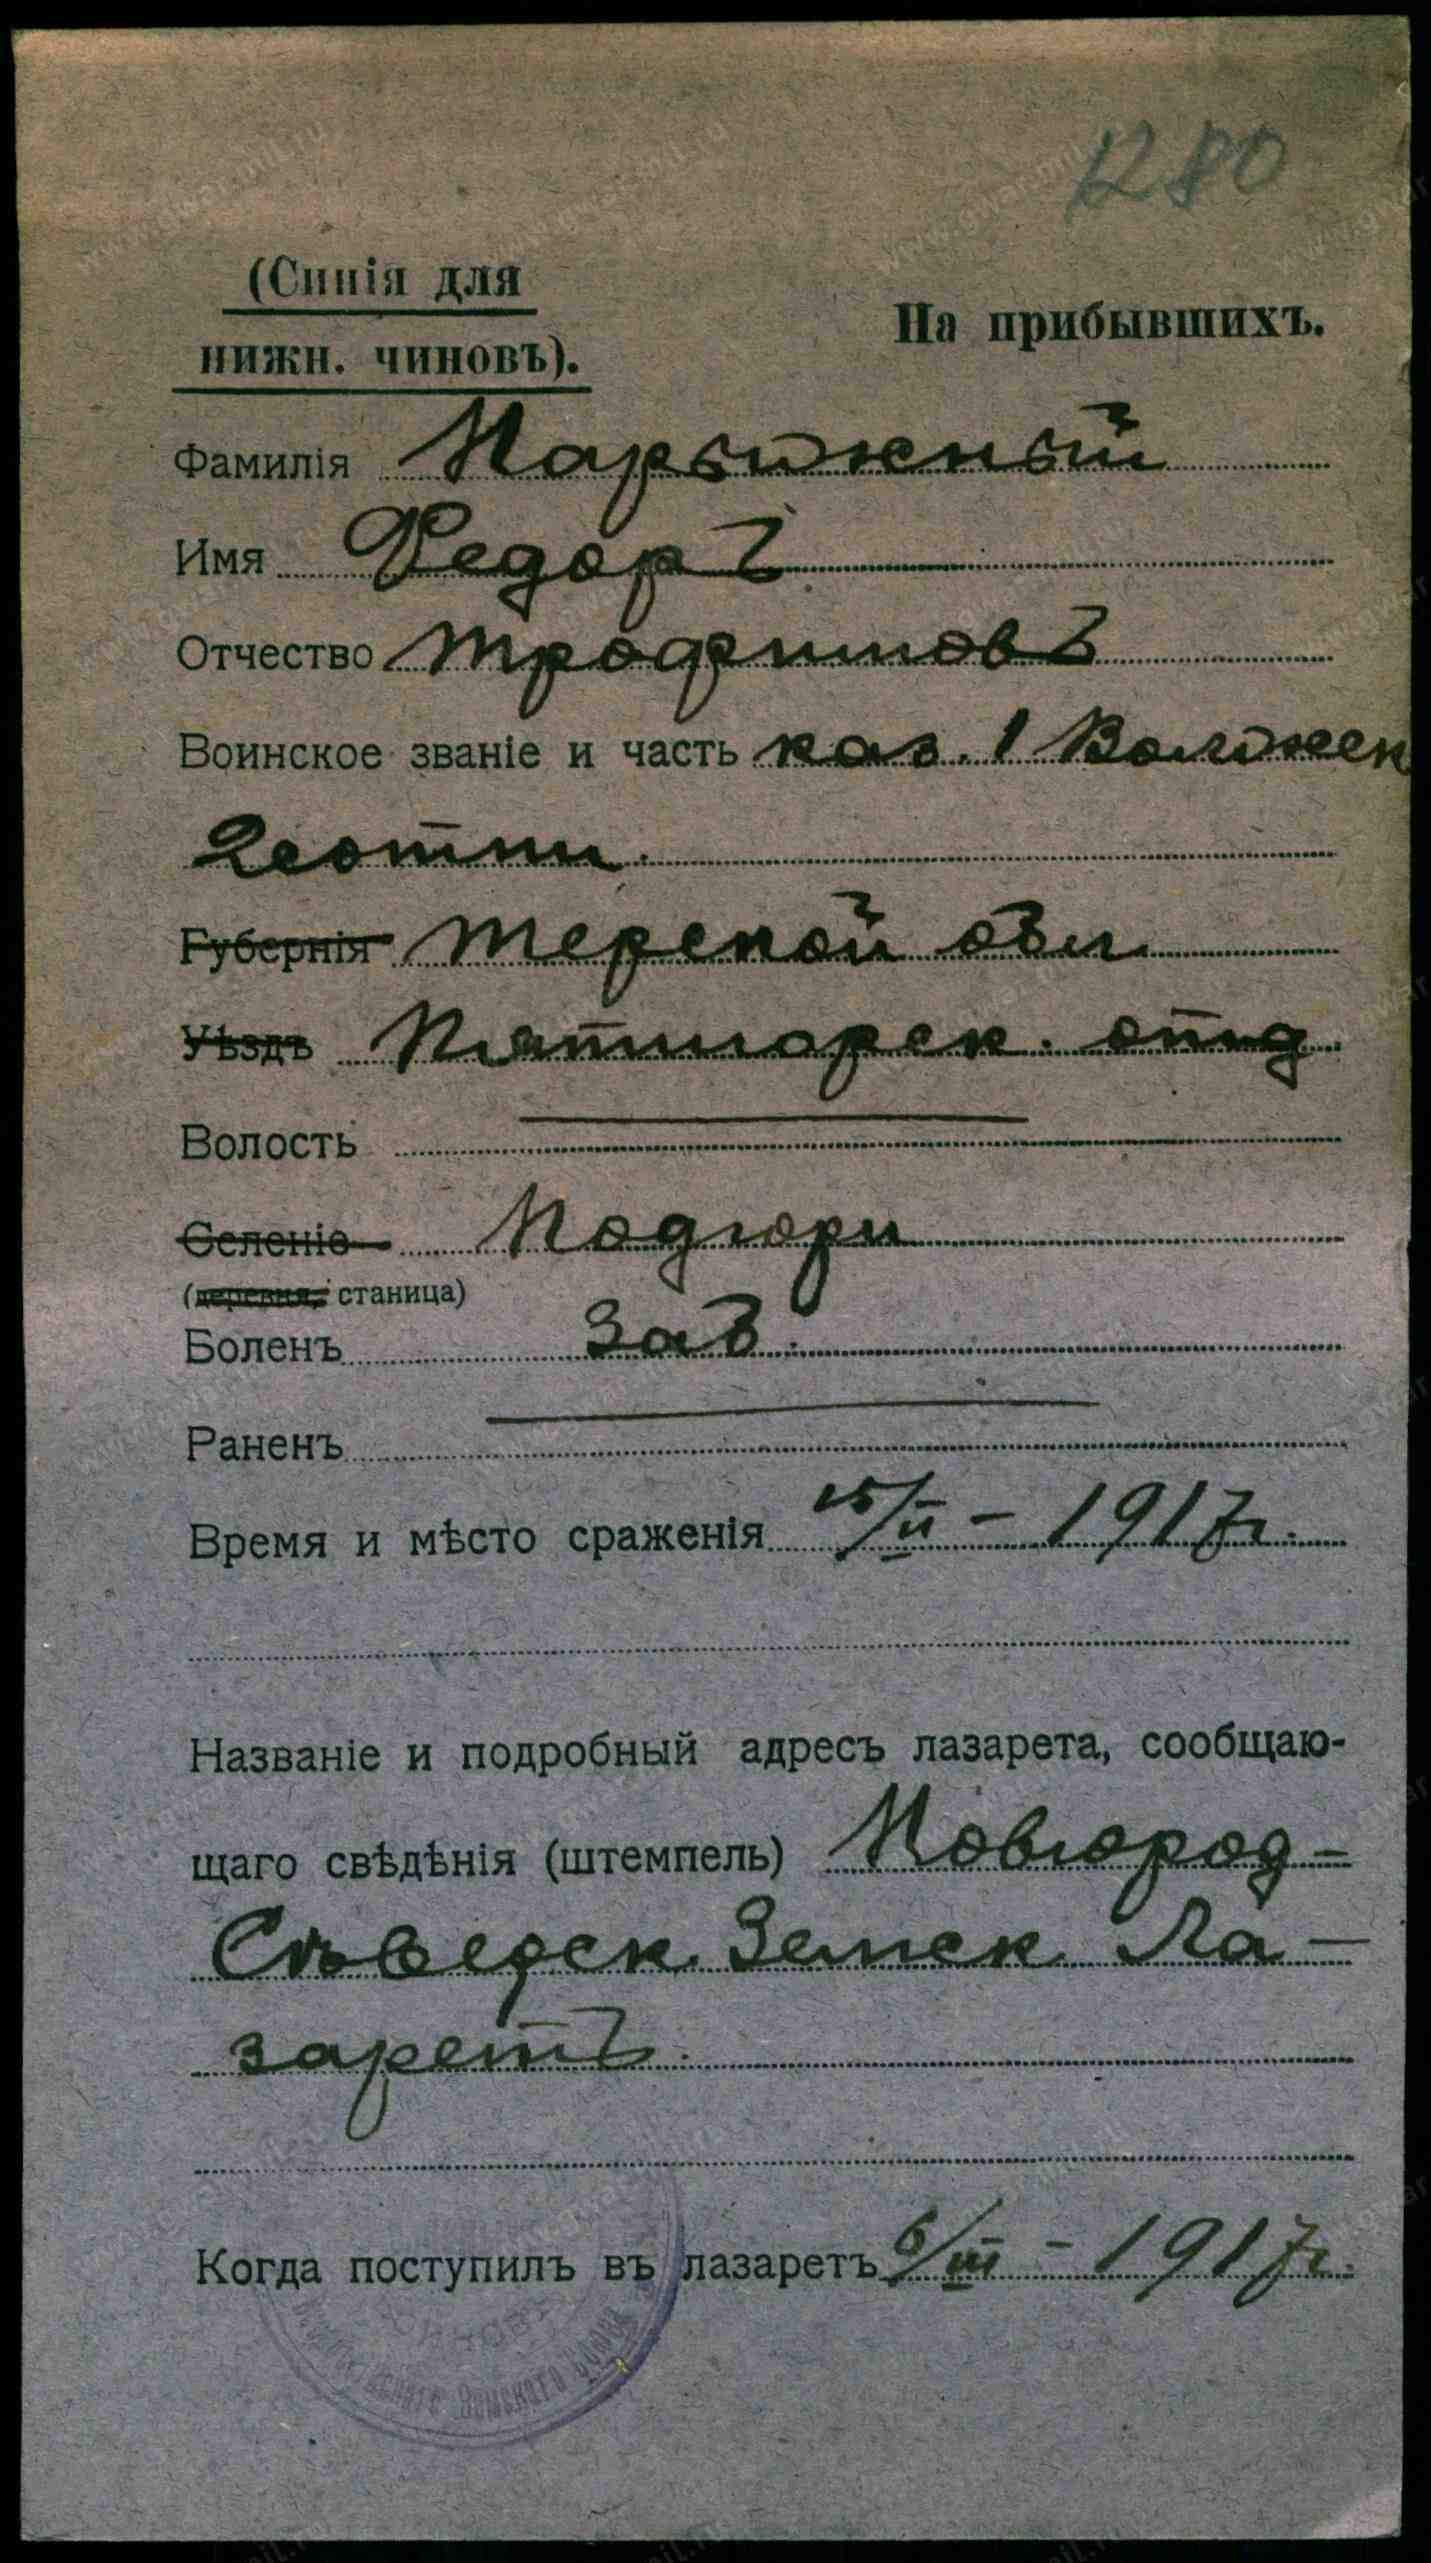 1280
(Синія для
нижн. чиновъ).
На прибывшихъ.
Фамилія Нарыжный
Имя Федоръ
Отчество Трофимовъ
Воинское званіе и часть каз. 1 Волжск
2 сотни.
Губернія Терской обл
Уѣздъ Пятигорск. отд
Волость
Селеніе Подгорн
(деревня, станица)
Боленъ Заб.
Раненъ
Время и мѣсто сраженія 15/II – 1917 г.
Названіе и подробный адресъ лазарета, сообщаю-
щаго свѣдѣнія (штемпель) Новгород-
Сѣверск. Земск Ла-
заретъ.
Когда поступилъ въ лазаретъ 6/III – 1917 г.
Земскаго
www.gwar.mil.ru